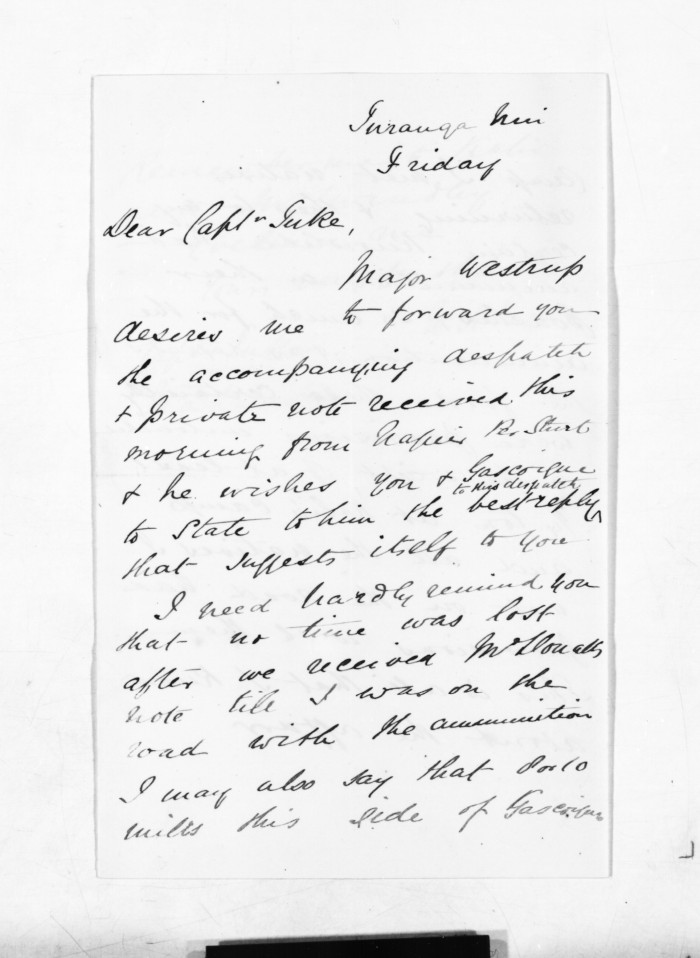 Turanga Nui
Friday
Dear Captn Tuke,
Major Westrup
desires me to forward you
the accompanying despatch
& private note received this
morning from Napier Pr Sturt
& he wishes you & Gascoigne
to this despatch
to State to him the best reply
that suggests itself to you
I need hardly remind you
that no time was lost
after we received McDonalds
note till I was on the
road with the ammunition
I may also say that 8 or 10
miles this side of Gascoigne